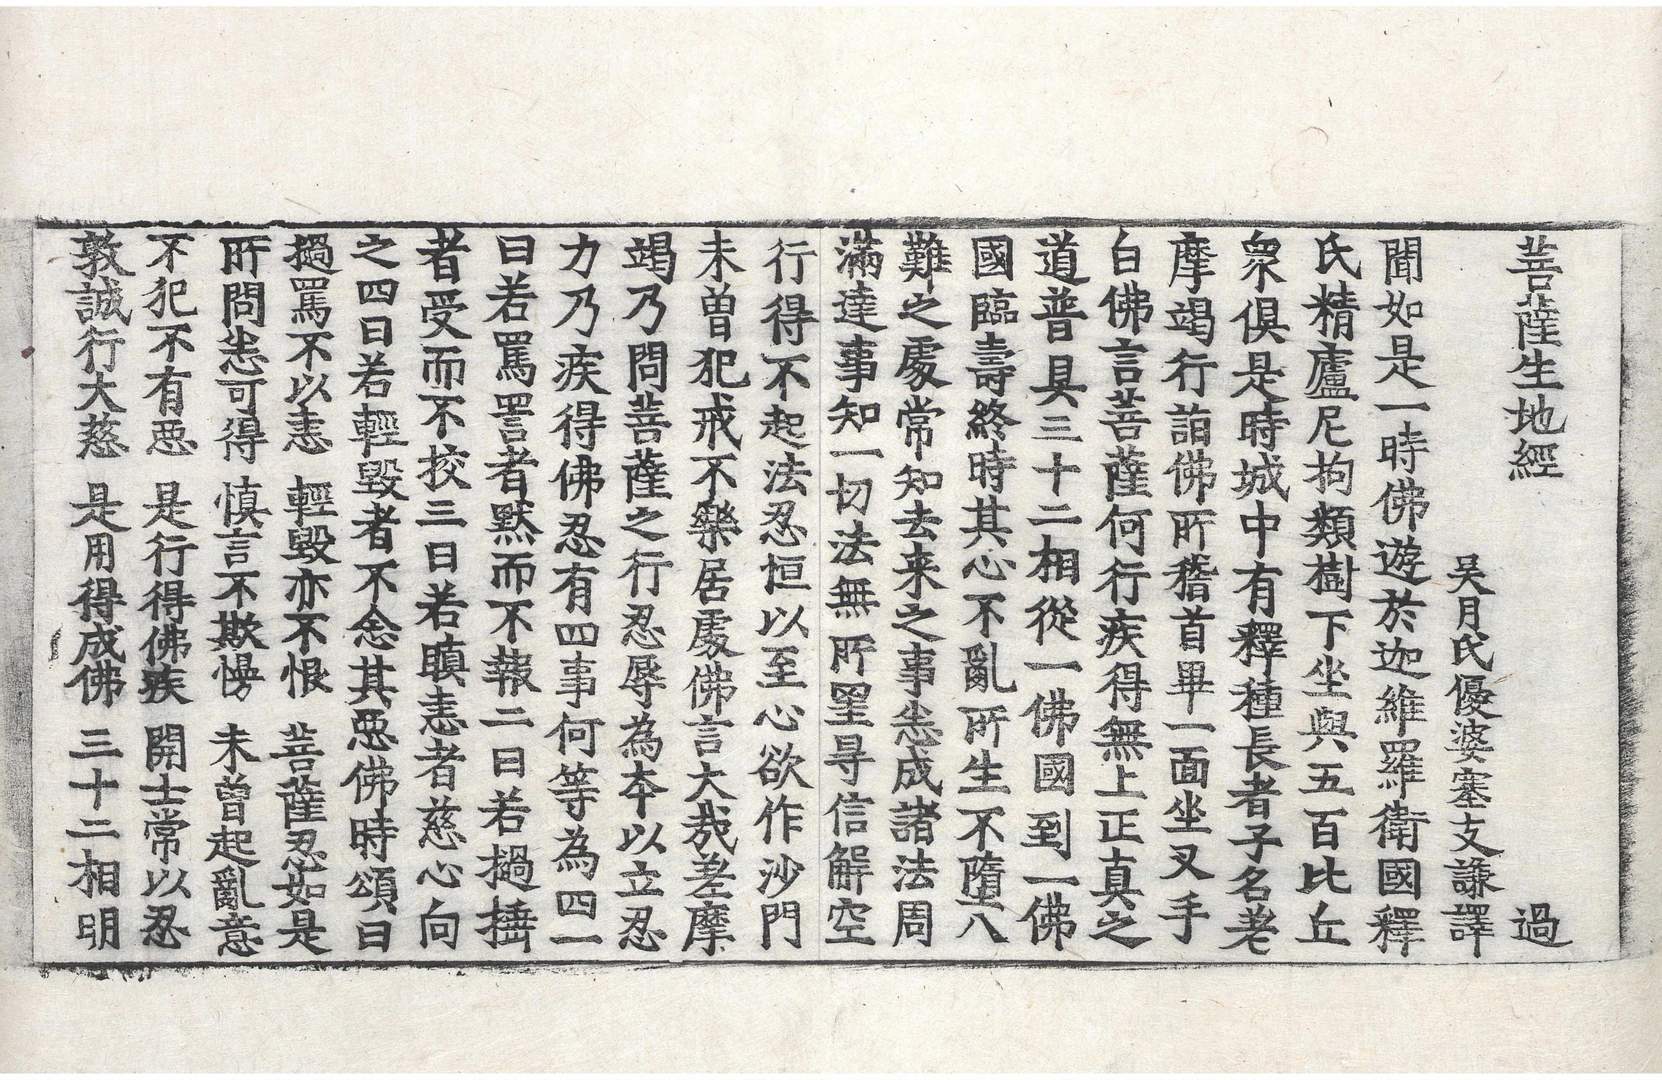 菩薩生地經　過
吳月氏優婆塞支謙譯
聞如是一時佛遊於迦維羅衛國釋
氏精廬尼拘類樹下坐與五百比丘
衆俱是時城中有釋種長者子名差
摩竭行詣佛所稽首畢一面坐叉手
白佛言菩薩何行疾得無上正真之
道普具三十二相從一佛國到一佛
國臨壽終時其心不亂所生不墮八
難之處常知去来之事悉成諸法周
滿達事知一切法無所罣㝵信解空
行得不起法忍恒以至心欲作沙門
未曽犯戒不樂居處佛言大㢤差摩
竭乃問菩薩之行忍辱為夲以立忍
力乃疾得佛忍有四事何等為四一
曰若罵詈者默而不報二曰若撾捶
者受而不挍三曰若瞋恚者慈心向
之四曰若輕毀者不念其惡佛時頌曰
撾罵不以恚　輕毀亦不恨　菩薩忍如是
所問悉可得　慎言不欺慢　未曽起亂意
不犯不有惡　是行得佛疾　開士常以忍
敦誠行大慈　是用得成佛　三十二相明